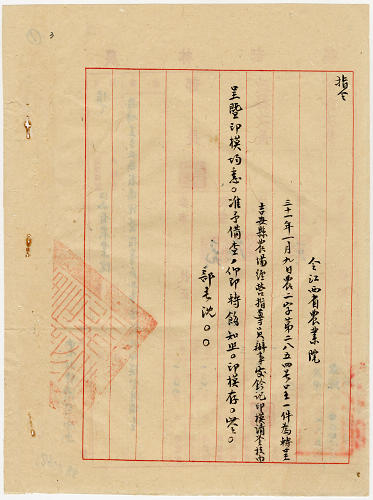 指令
令江西省農業院
三十一年一月九日農二字第二八五四號呈一件為轉呈
吉安縣農場經營指導員辦事處鈐記印模請查核由
呈暨印模均悉。准予備查，仰即轉飭知照。印模存。此令。
部長沈〇〇
3